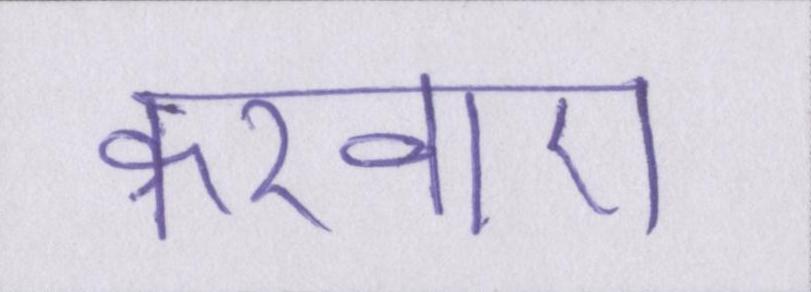 करवाए